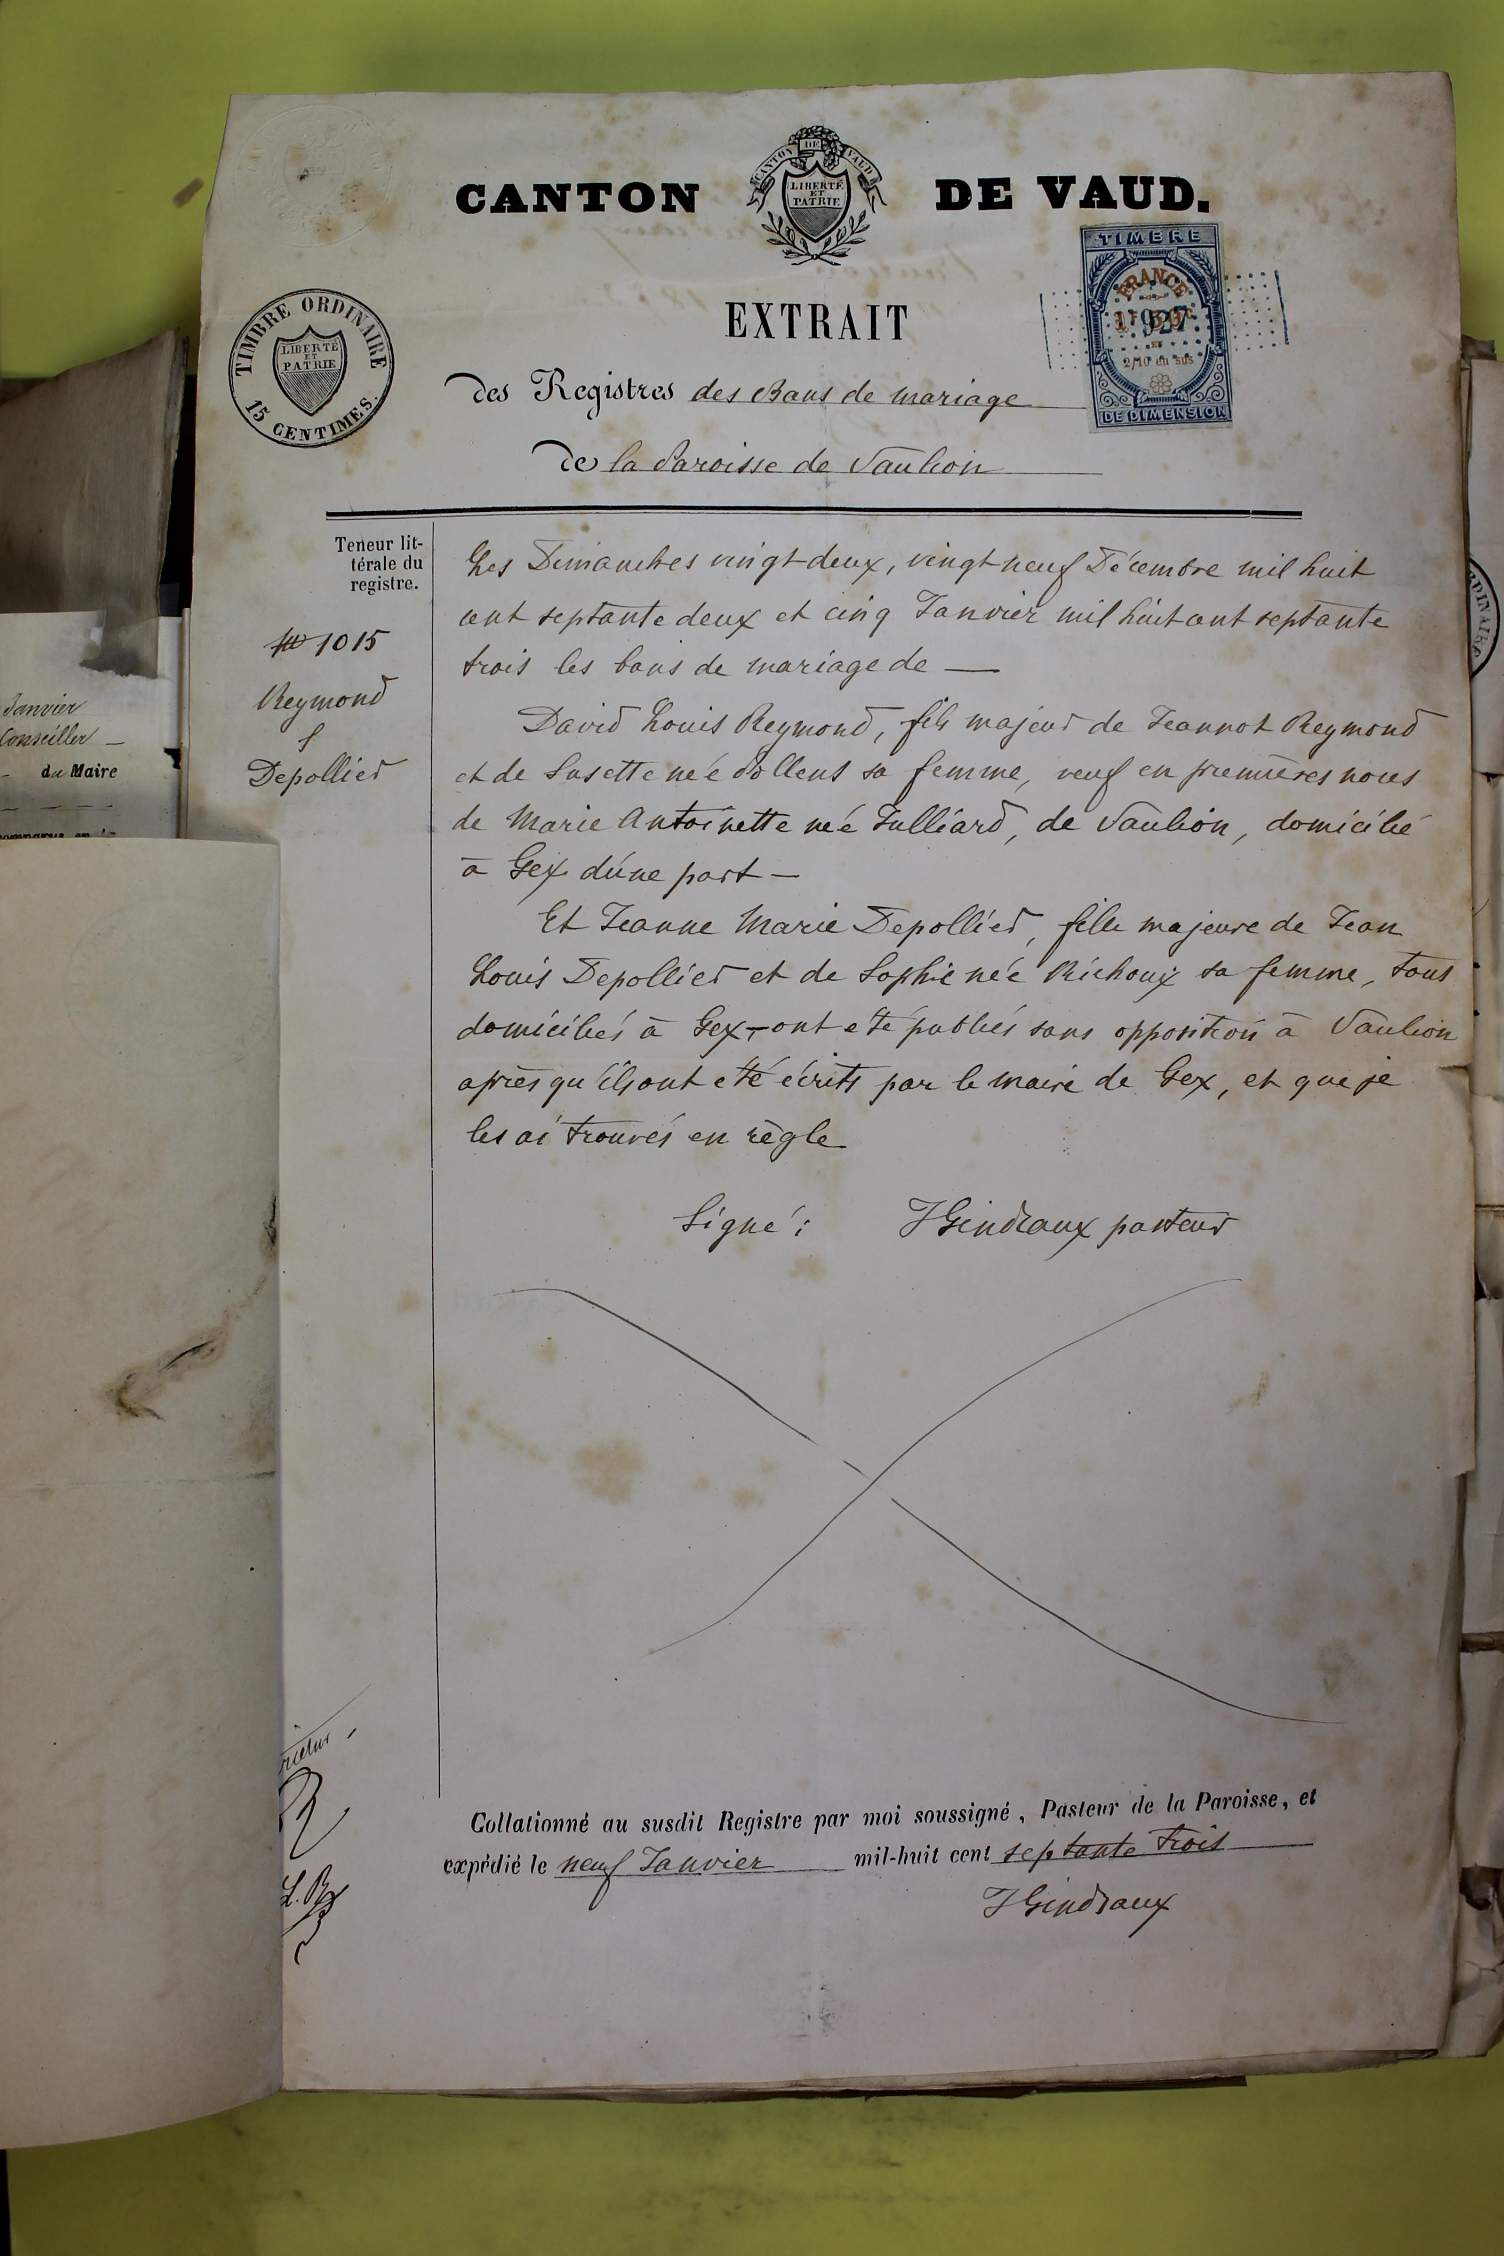 CANTON DE VAUD.
CANTON DE VAUD
LIBERTÉ
ET
PATRIE
TIMBRE
FRANCE
927
2/10 en sus
DE DIMENSION
TIMBRE ORDINAIRE
LIBERTÉ
ET
PATRIE
15 CENTIMES.
EXTRAIT
des Registres des Bans de mariage
de la Paroisse de Vaulion
Teneur lit-
térale du
registre.
1015
Reymond
&
Depollier
Les Dimanches vingt deux, vingt neuf Décembre mil huit
cent septante deux et cinq Janvier mil huit cent septante
trois les bans de mariage de —
David Louis Reymond, fils majeur de Jeannot Reymond
et de Susette née Dollens sa femme, veuf en premières noces
de Marie Antoinette née Julliard, de Vaulion, domicilié
à Gex d'une part —
Et Jeanne Marie Depollier, fille majeure de Jean
Louis Depollier et de Sophie née Richoux sa femme, tous
domiciliés à Gex, — ont été publiés sans opposition à Vaulion
après qu'ils ont été écrits par le maire de Gex, et que je
les ai trouvés en règle
Signé : JGindraux pasteur
Collationné au susdit Registre par moi soussigné, Pasteur de la Paroisse, et
expédié le neuf Janvier mil-huit cent septante trois
JGindraux
Janvier
Conseiller —
du Maire